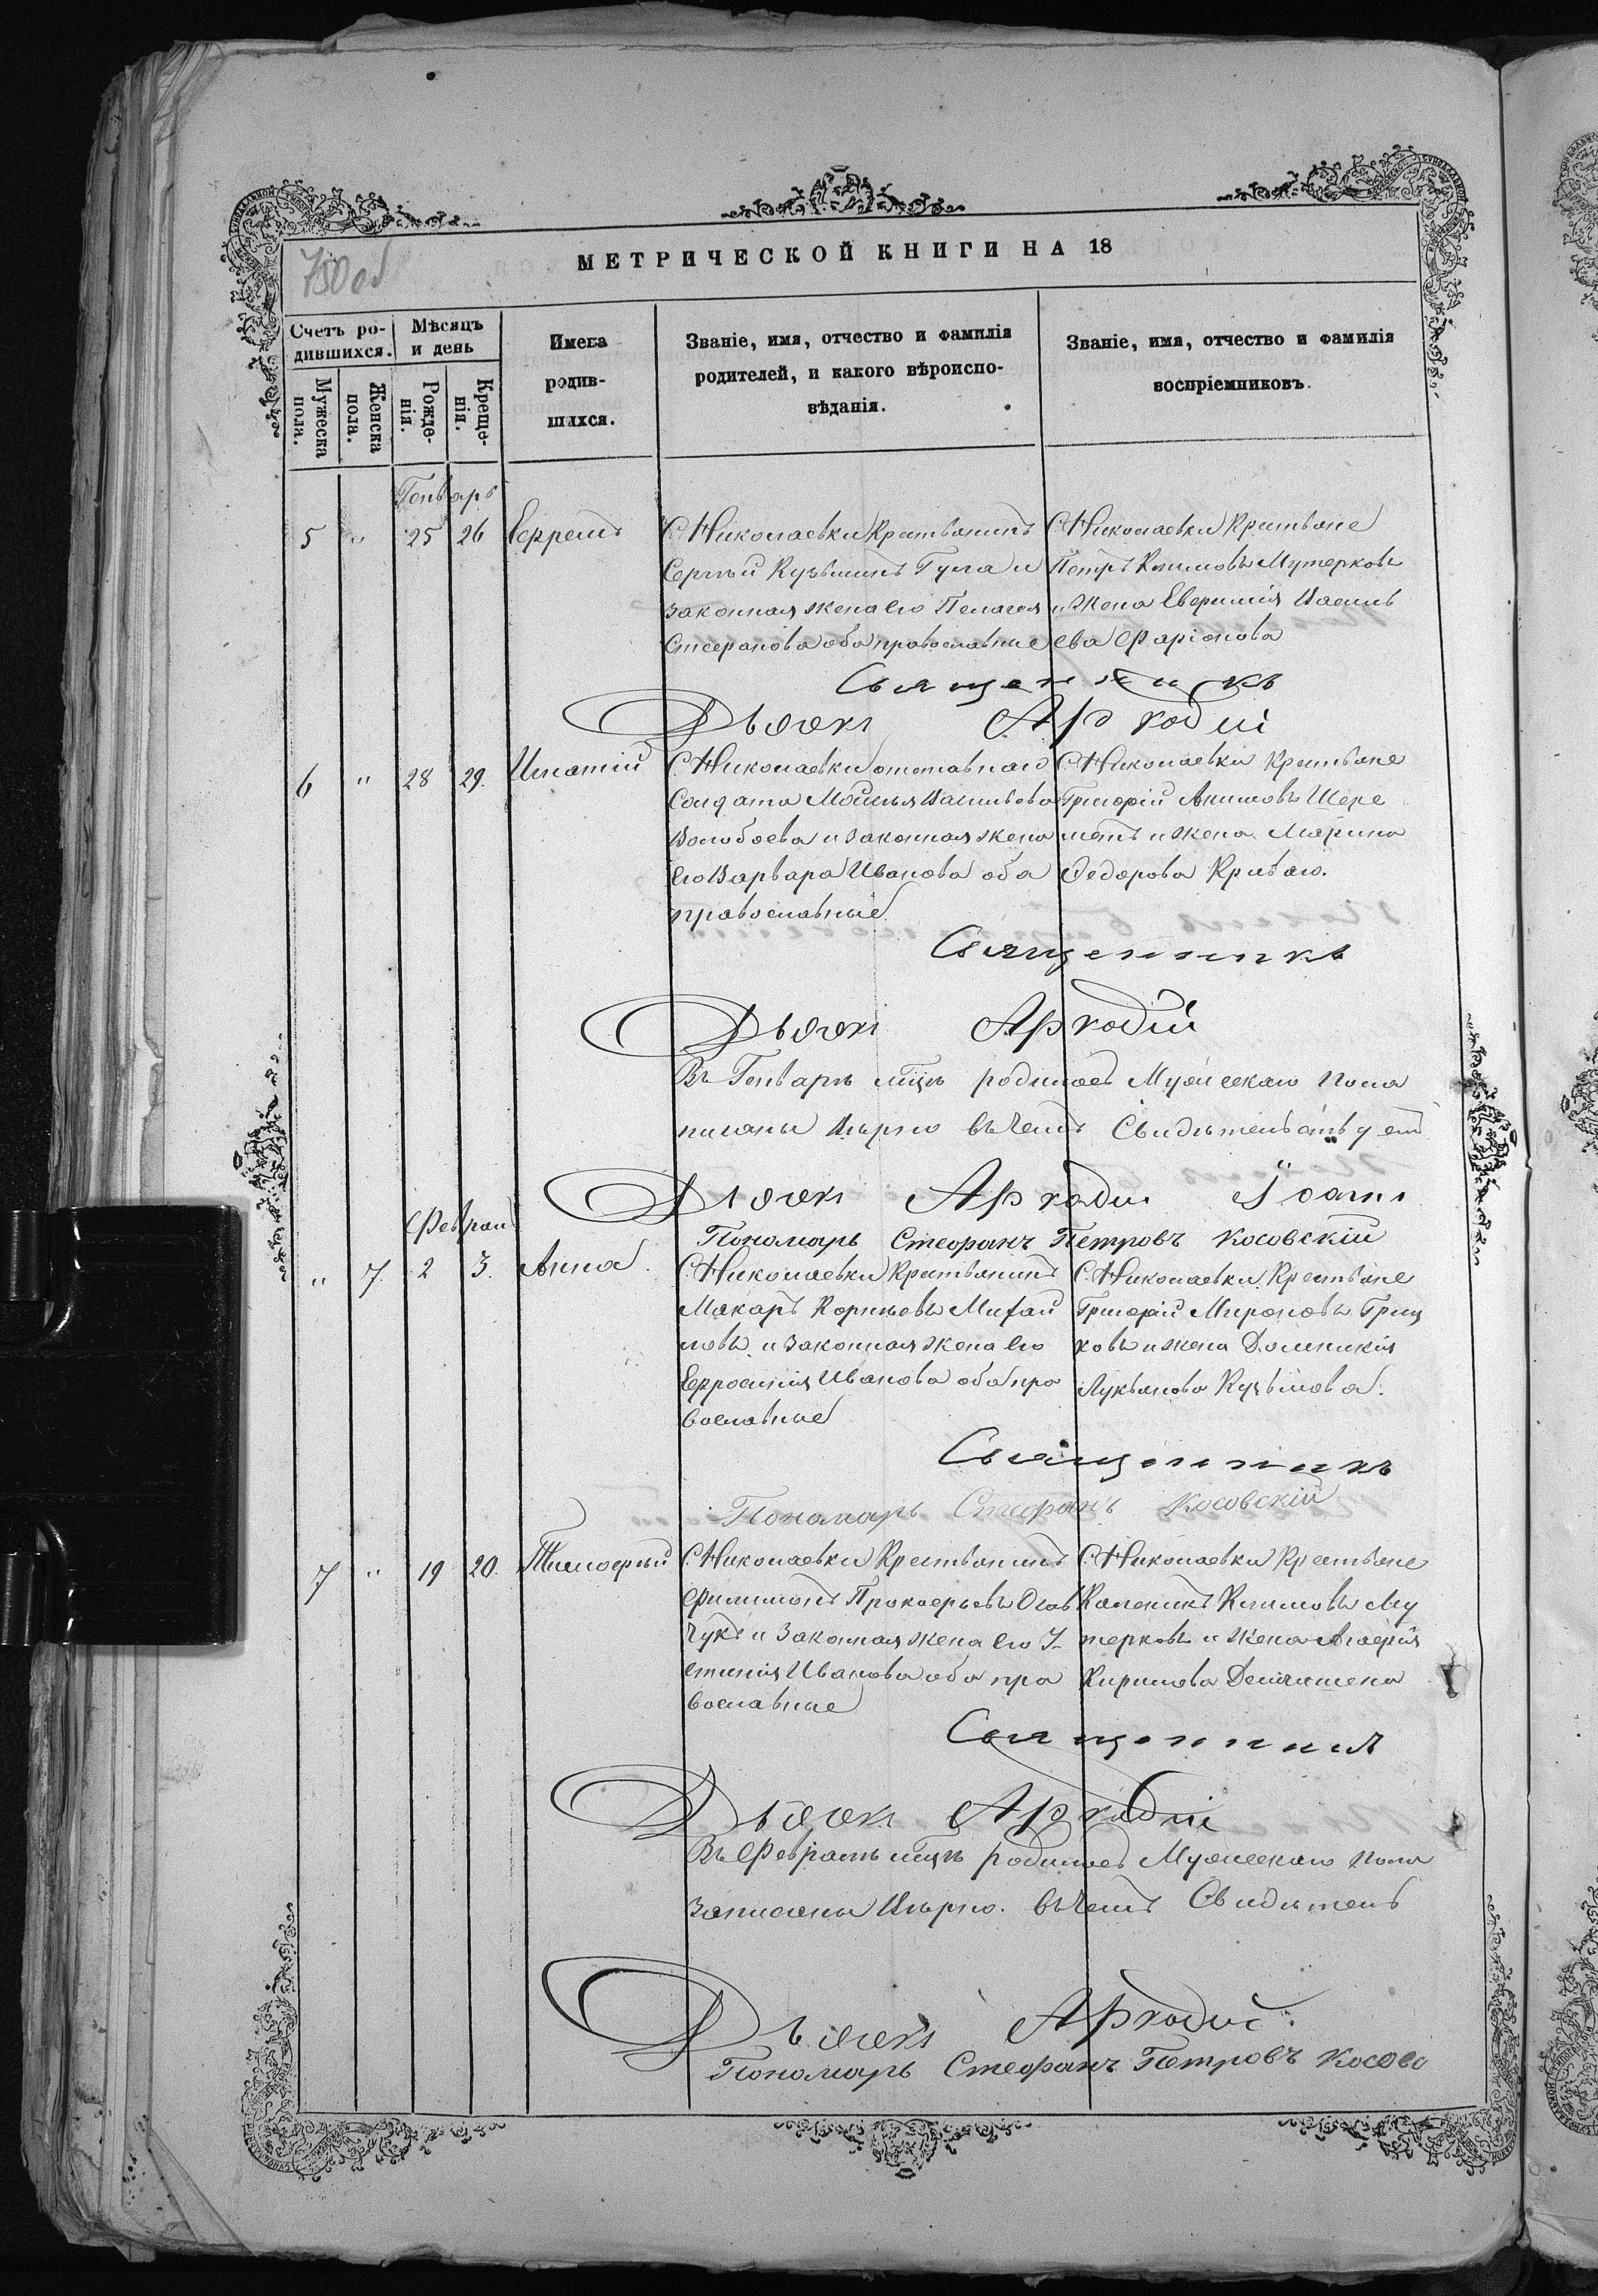 МЕТРИЧЕСКОЙ КНИГИ НА 18
750 об
Счетъ ро-
дившихся.
Мужеска пола.
Женска пола.
Мѣсяцъ
и день
Рожде-
нія.
Креще-
нія.
Имена
родив-
шихся.
Званіе, имя, отчество и фамилія
родителей, и какого вѣроиспо-
вѣданія.
Званіе, имя, отчество и фамилія
воспріемниковъ.
Генварь
5 " 25 26 Ефремъ
С. Николаевки Крестьянинъ
Сергѣй Кузьминъ Гула и
законная жена его Пелагея
Стефанова оба православные
С. Николаевки Крестьяне
Петръ Климовъ Мутерковъ
и Жена Евфимія Василь
ева Фаріонова
Священникъ
Дьячокъ Аркадій
6 " 28 29. Игнатій
С. Николаевки отставнаго
Солдата Мойсея Васильева
Волобоева и законная жена
его Варвара Иванова оба
православные
С. Николаевки Крестьяне
Григорій Акимовъ Шере
метъ и жена Марина
Федорова Криваго.
Священникъ
Дьячокъ Аркадій
Въ Генварѣ мцѣ родилось Мужескаго пола
писаны вѣрно въ чемъ Свидѣтельствуетъ
Дьячокъ Аркадій Іоанн
Пономарь Стефанъ Петровъ Косовскій
Февраль
" 7. 2 3. Анна.
С. Николаевки Крестьянинъ
Макаръ Корнѣевъ Михай
ловъ и законная жена его
Ефросинія Иванова оба пра
вославные
С. Николаевки Крестьяне
Григорій Мироновъ Гриц
ковъ и жена Доменикія
Лукьянова Кузьмова.
Священникъ
Пономарь Стефанъ Косовскій
7 " 19 20. Тимофей
С. Николаевки Крестьянинъ
Филимонъ Прокофьевъ
и Законная жена его У
стинія Иванова оба пра
вославные
С. Николаевки Крестьяне
Каленикъ Климовъ Му
терковъ и жена Агафія
Кирилова
Священник
Дьячокъ Аркадій
Въ Февралѣ мцѣ родилось Мужескаго пола
записаны вѣрно. въ чемъ Свидѣтель
Дьячокъ Аркадій
Пономарь Стефанъ Петровъ Косовс